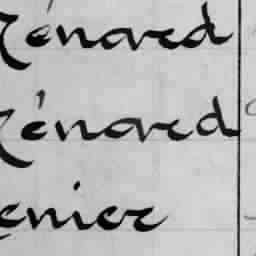 Rénard
Rénard
enier